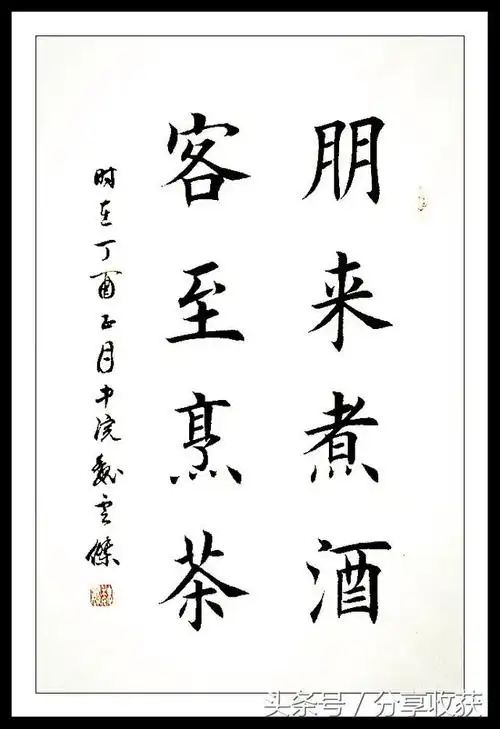 朋来煮酒
客至烹茶
时在丁酉正月中浣魏云杰
头条号/分享收获